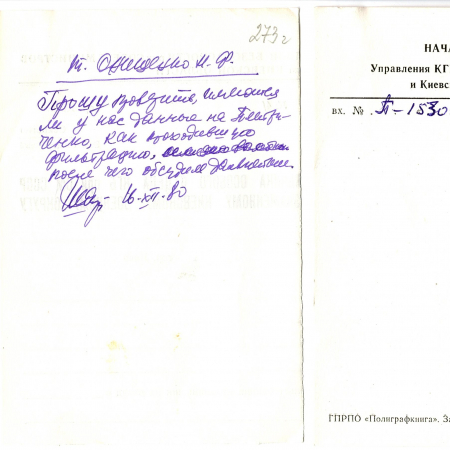 273г
т. Онищенко Н. Ф.
Прошу проверить, имеются
ли у нас данные на Пект
ченко, как проходившую
фильтрацию,
после чего обсудим
16.XII.80
НАЧА
Управления КГ
и Киевс
вх. № П-1530
ГПРПО «Полиграфкнига». За